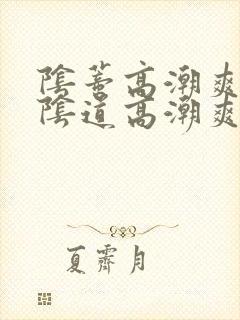 陰蒂高潮爽
陰道高潮爽
夏霽月